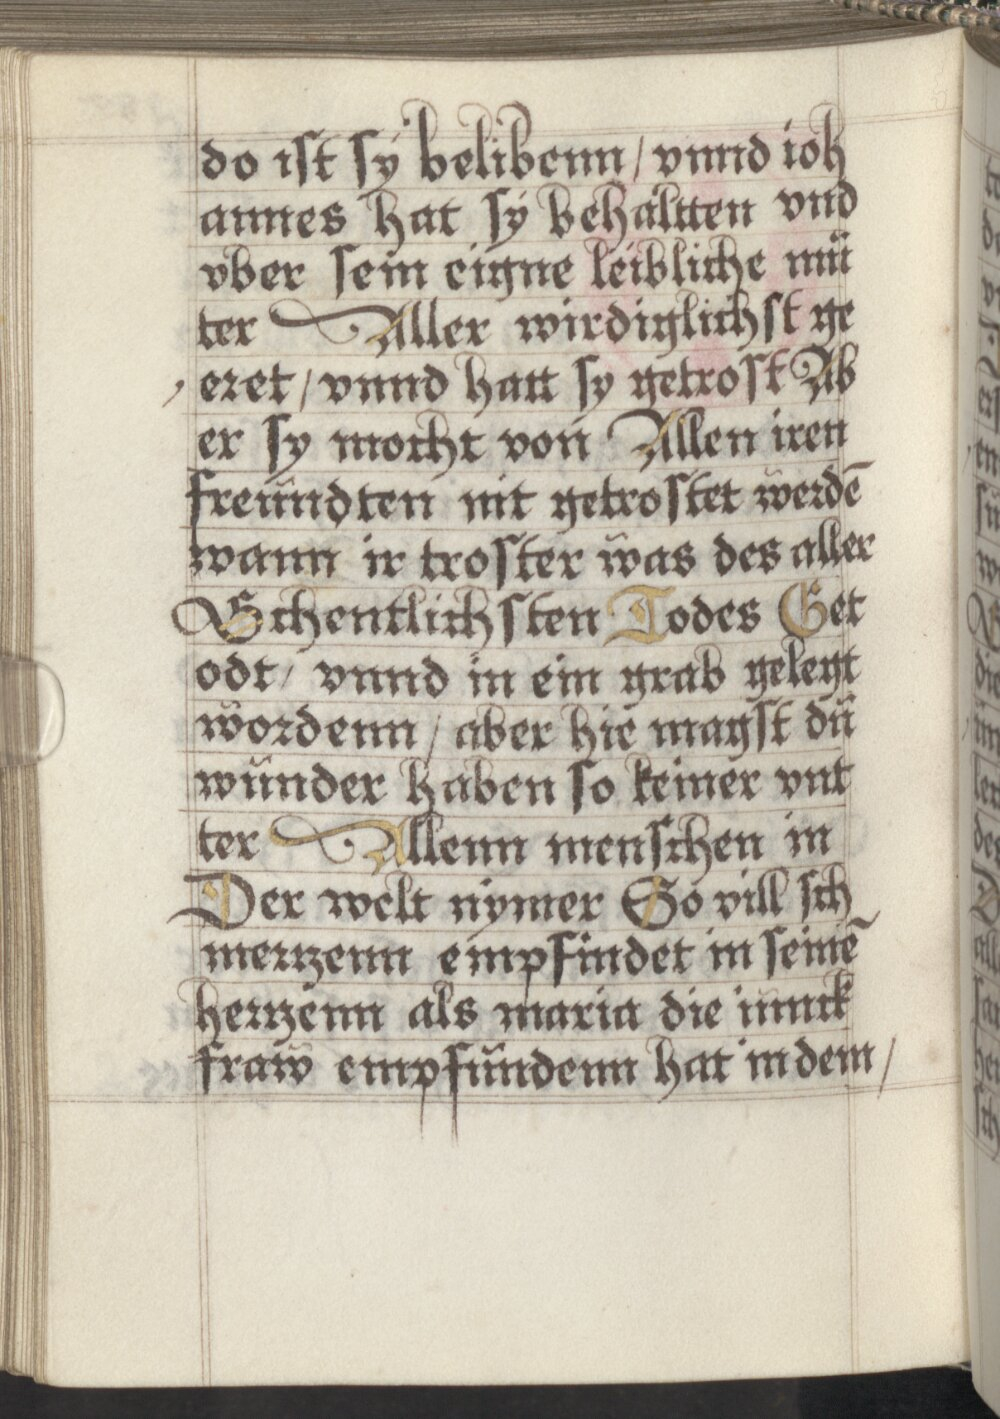 do ist sÿ belibenn / vnnd ioh
annes hat sÿ behaltten vnd
vber sein eigne leibliche mů
ter Aller wirdiglichst ge
eret / vnnd hatt sy getrost Ab
er sy mocht von Allen iren
freůndten nit getrostet werdē
wann ir troster was des aller
Schentlichsten Todes Get
odt / vnnd in ein grab gelegt
wordenn / aber hie magst dů
wůnder haben so keiner vnt
ter Allenn menschen in
Der welt nymer So vill sch
merczenn empfindet in seinē
herczenn als maria die iůnck
fraw empfůndenn hat in dem /